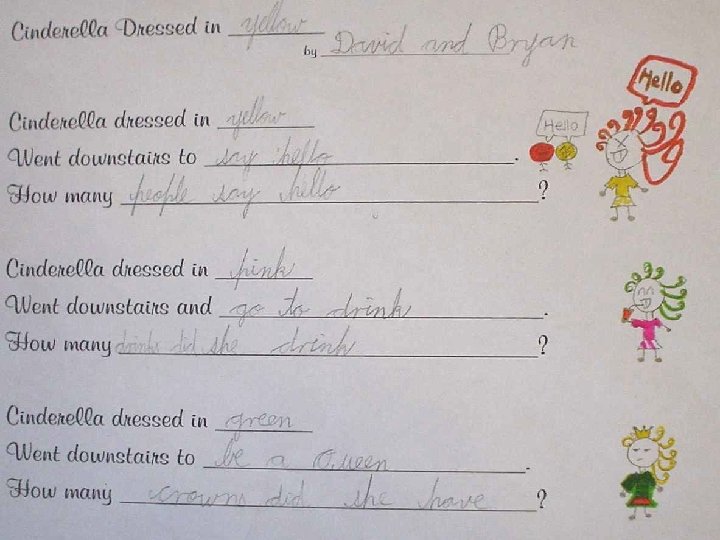 Cinderella Dressed in yellow
by David and Bryan
Hello
Cinderella dressed in yellow
Hello
Went downstairs to say hello.
How many people say hello?
Cinderella dressed in pink
Went downstairs and go to drink.
How many drinks did she drink?
Cinderella dressed in green
Went downstairs to be a Queen.
How many crowns did she have?